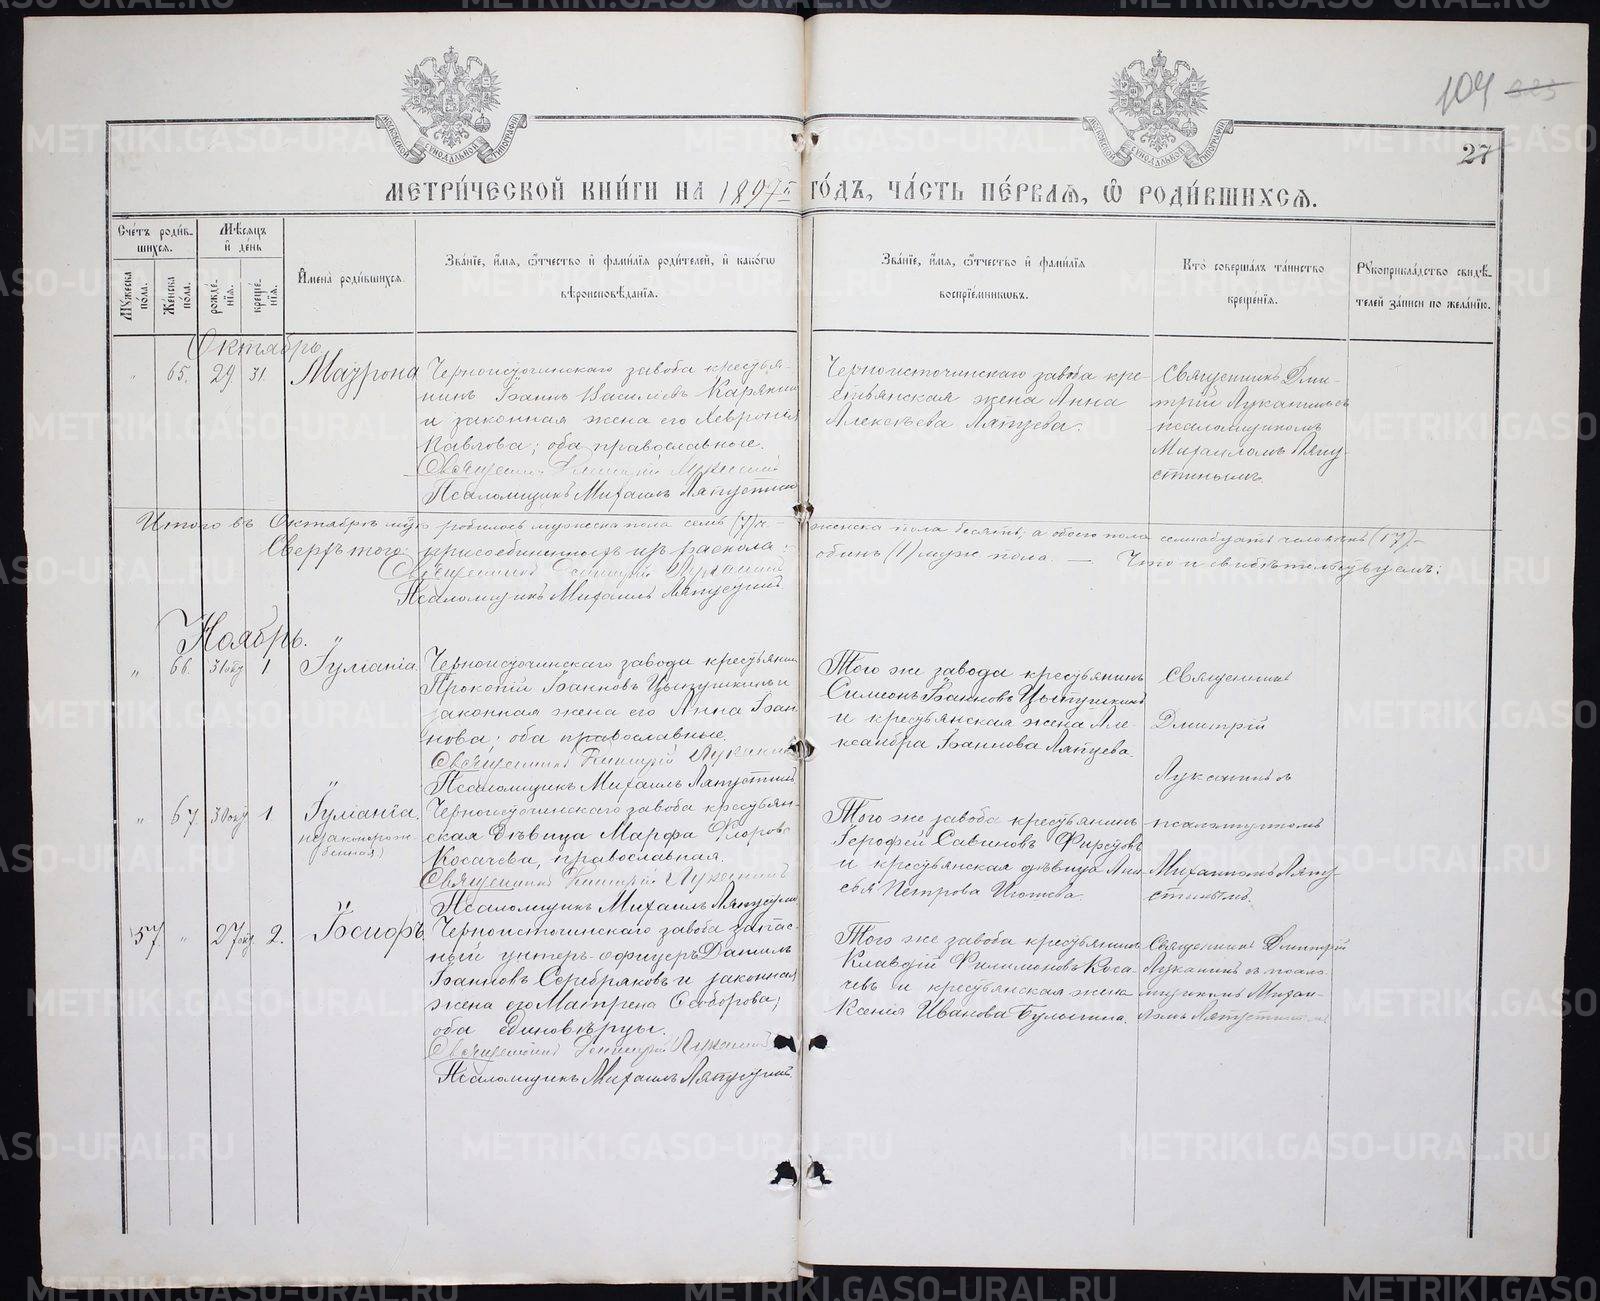 104 225
27
МЕТРИ́ЧЕСКОЙ КНИ́ГИ НА 1897й ГО́ДЪ, ЧА́СТЬ ПЕ́РВАѦ, Ѽ РОДИ́ВШИХСѦ.
Сче́тъ роди́в-
шихсѧ.
Мѣ́сѧцъ
и҆ де́нь
Мꙋ́жеска
по́ла.
Же́нска
по́ла.
рожде́-
нїѧ.
креще́-
нїѧ.
И҆мена̀ роди́вшихсѧ.
Зва́нїе, и҆́мѧ, ѻ҆́тчество и҆ фамилїѧ роди́телей, и҆ како́гѡ
вѣроисповѣ́данїѧ.
Зва́нїе, и҆́мѧ, ѻ҆́тчество и҆ фами́лїѧ
воспрїе́мникѡвъ.
Кто̀ соверша́лъ та́инство
креще́нїѧ.
Рꙋкоприкла́дство свидѣ́-
телей за́писи по жела́нїю.
Октябрь.
" 65. 29 31. Матрона
Черноисточинскаго завода крестья-
нинъ Іоаннъ Васильевъ Карякинъ
и законная жена его Феврония
Павлова; оба православные.
Священникъ Димитрій Луканинъ
Псаломщикъ Михаилъ Ляпустинъ
Черноисточинскаго завода кре-
стьянская жена Анна
Алексѣева Ляпцева.
Священникъ Дми-
трій Луканинъ съ
псаломщикомъ
Михаиломъ Ляпу-
стинымъ
Итого въ Октябрѣ мцѣ родилось мужеска пола семь (7) и женска пола десять, а обоего пола семнадцать человѣкъ (17)
Сверхъ того: присоединилось изъ раскола: одинъ (1) муж. пола. — Что и свидѣтельствуемъ:
Священникъ Димитрій Луканинъ
Псаломщикъ Михаилъ Ляпустинъ.
Ноябрь.
" 66. 31 окт 1 Іуліанія.
Черноисточинскаго завода крестьянинъ
Прокопій Іоанновъ Цыпушкинъ и
законная жена его Анна Іоан-
нова; оба православные.
Священникъ Димитрій Луканинъ
Псаломщикъ Михаилъ Ляпустинъ
Того же завода крестьянинъ
Симеонъ Іоанновъ Цыпушкинъ
и крестьянская жена Але-
ксандра Іоаннова Ляпцева.
Священникъ
Дмитрій
Луканинъ съ
" 67. 30 окт 1 Іуліанія.
незаконорож-
денная)
Черноисточинскаго завода крестьян-
ская дѣвица Марфа Флорова
Косачева, православная.
Священникъ Димитрій Луканинъ
Псаломщикъ Михаилъ Ляпустинъ
Того же завода крестьянинъ
Іерофей Савиновъ Фирсовъ
и крестьянская дѣвица Ани-
сья Петрова
псаломщикомъ
Михаиломъ Ляпу-
стинымъ.
57 " 27 окт 2. Іосифъ.
Черноисточинскаго завода запас-
ный унтеръ-офицеръ Даніилъ
Іоанновъ Серебряковъ и законная
жена его Матрена Ѳеодорова;
оба Единовѣрцы.
Священникъ Димитрій Луканинъ
Псаломщикъ Михаилъ Ляпустинъ.
Того же завода крестьянинъ
Клавдій Филимоновъ Коса-
чевъ и крестьянская жена
Ксенія Иванова Булыгина.
Священникъ Дмитрій
Луканинъ съ псало-
мщикомъ Михаи-
ломъ Ляпустинымъ
METRIKI.GASO-URAL.RU